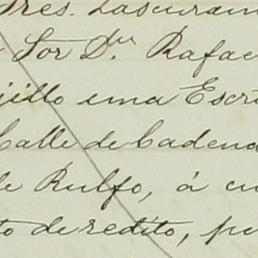 Tres. Lascurain
Sor Dn. Rafae
üllo una Escri
Calle de Cadena
de Rulfo, á cu
to de redito, po